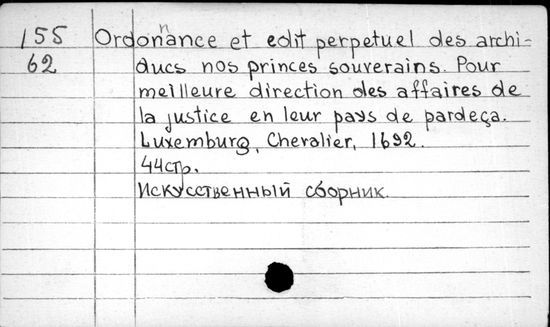 155 Ordonnance et edit perpetuel des archi-
62 ducs nos princes souverains. Pour
meilleure direction des affaires de
la justice en leur pays de pardeça.
Luxemburg, Chevalier, 1692.
44стр.
Искусственный сборник.